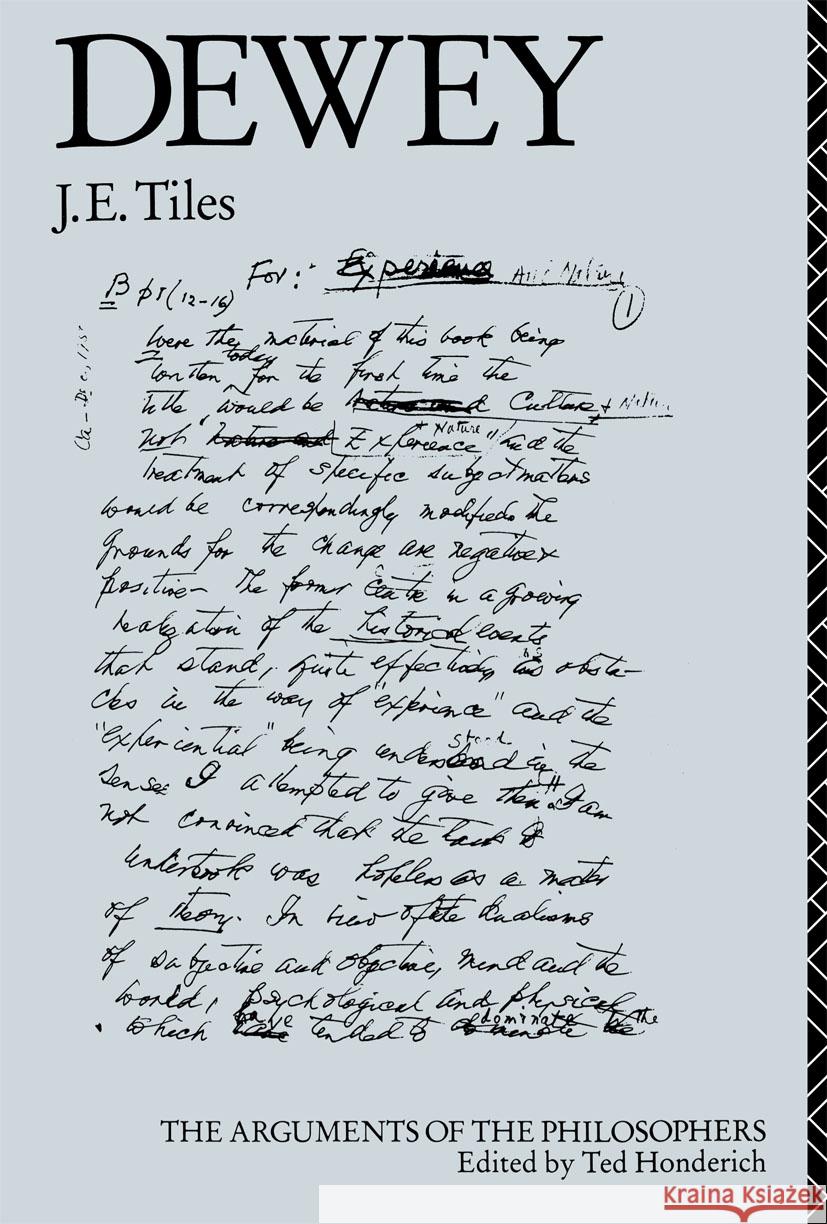 DEWEY
J.E. Tiles
For: Experience And Nature
B pt (12-16)
1
Were the material of this book being
written today for the first time the
title would be Culture + Nature
not Experience + Nature" and the
treatment of specific subject matters
would be correspondingly modified. The
grounds for the change are negative &
positive — The former in a growing
realization of the historical events
that stand, quite effectively as obsta-
cles in the way of "experience" and the
"experiential" being understood in the
sense I attempted to give them. I am
not convinced that the task I
undertook was hopeless as a matter
of theory. In view of the dualisms
of subjective and objective, mind and the
world, psychological and physical
which have tended to dominate the
THE ARGUMENTS OF THE PHILOSOPHERS
Edited by Ted Honderich
Kraina Ksiazek